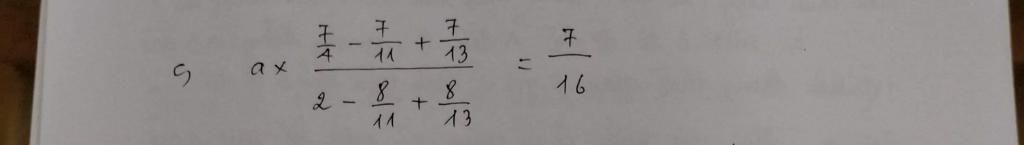 c, a × (7/4 − 7/11 + 7/13) / (2 − 8/11 + 8/13) = 7/16